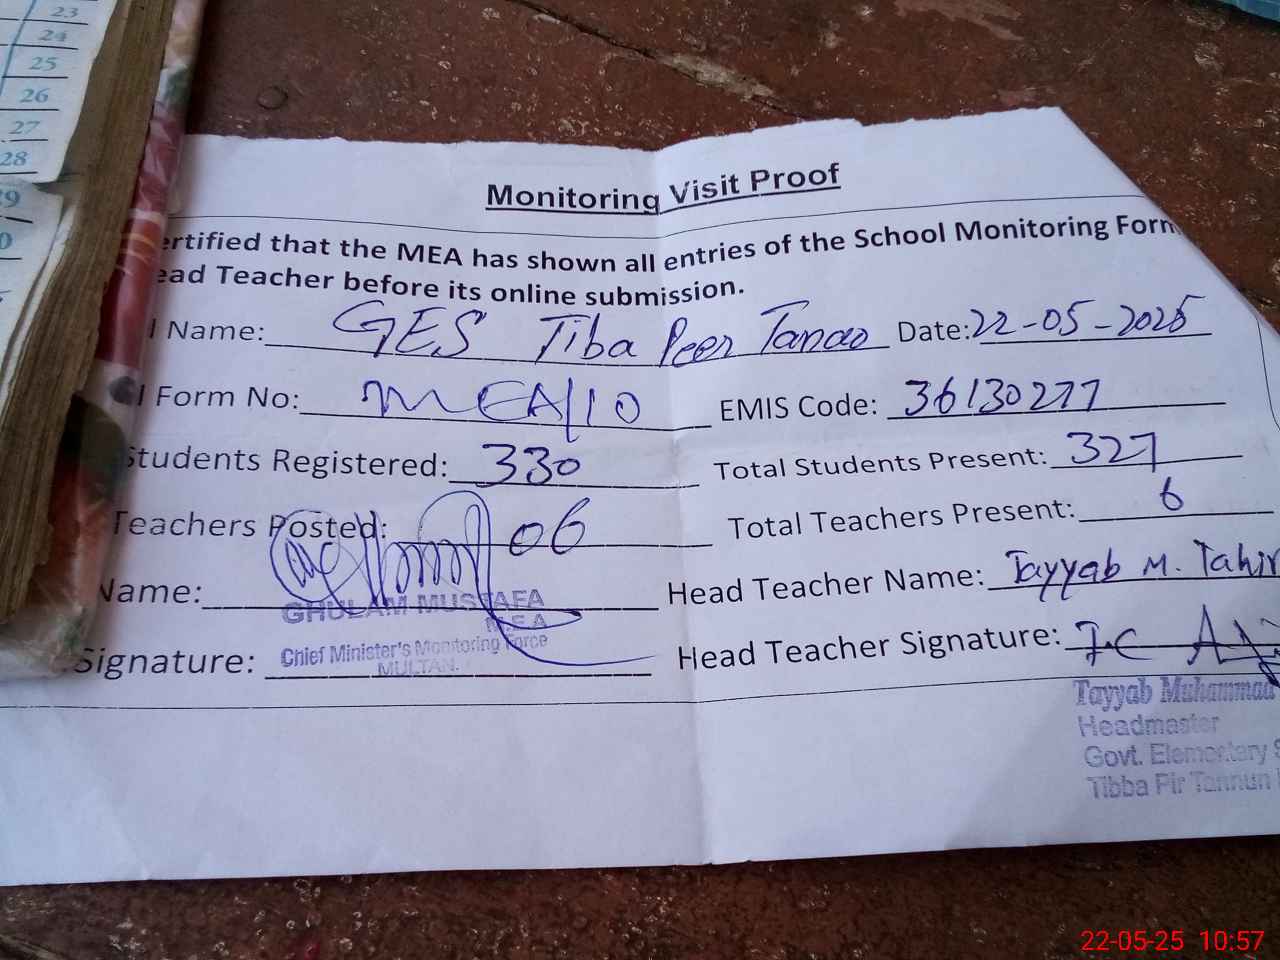 23
24
25
26
27
28
Monitoring Visit Proof
ertified that the MEA has shown all entries of the School Monitoring Form
ead Teacher before its online submission.
l Name: GES Tiba Peer Tanoo Date: 22-05-2025
l Form No: MEA/10 EMIS Code: 36130277
Students Registered: 330 Total Students Present: 327
Teachers Posted: 06 Total Teachers Present: 6
Name: Head Teacher Name: Tayyab M. Tahir
GHULAM MUSTAFA
M.E.A
Signature: Head Teacher Signature:
Chief Minister's Monitoring Force
MULTAN.
Tayyab Muhammad
Headmaster
Govt. Elementary S
Tibba Pir Tannun
22-05-25 10:57